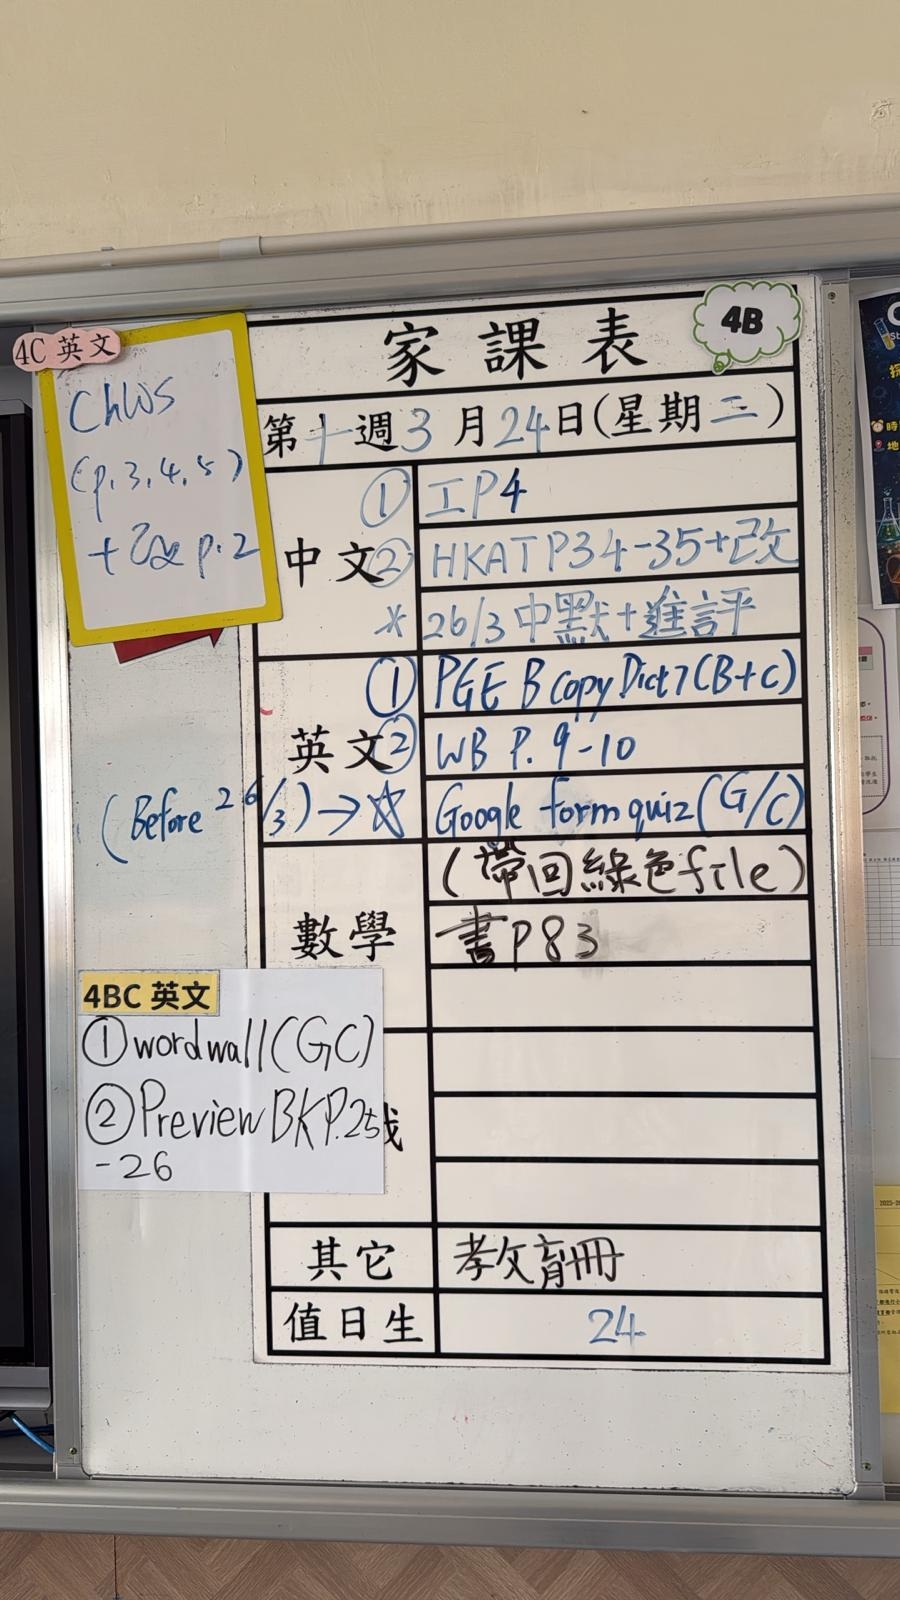 4C 英文
ChWS
(p.3,4,5)
p.2
家課表
4B
第十週3月24日(星期二)
中文
① 工P4
② HKAT P34-35+改
* 26/3中默+進評
英文
① PGE B copy Dict 7 (B+C)
② WB P. 9-10
(Before 26/3) → ☆ Google form quiz (G/C)
數學
(帶回綠色file)
書P83
4BC 英文
① wordwall (GC)
② Preview BK P.25
-26
其它
教育冊
值日生
24